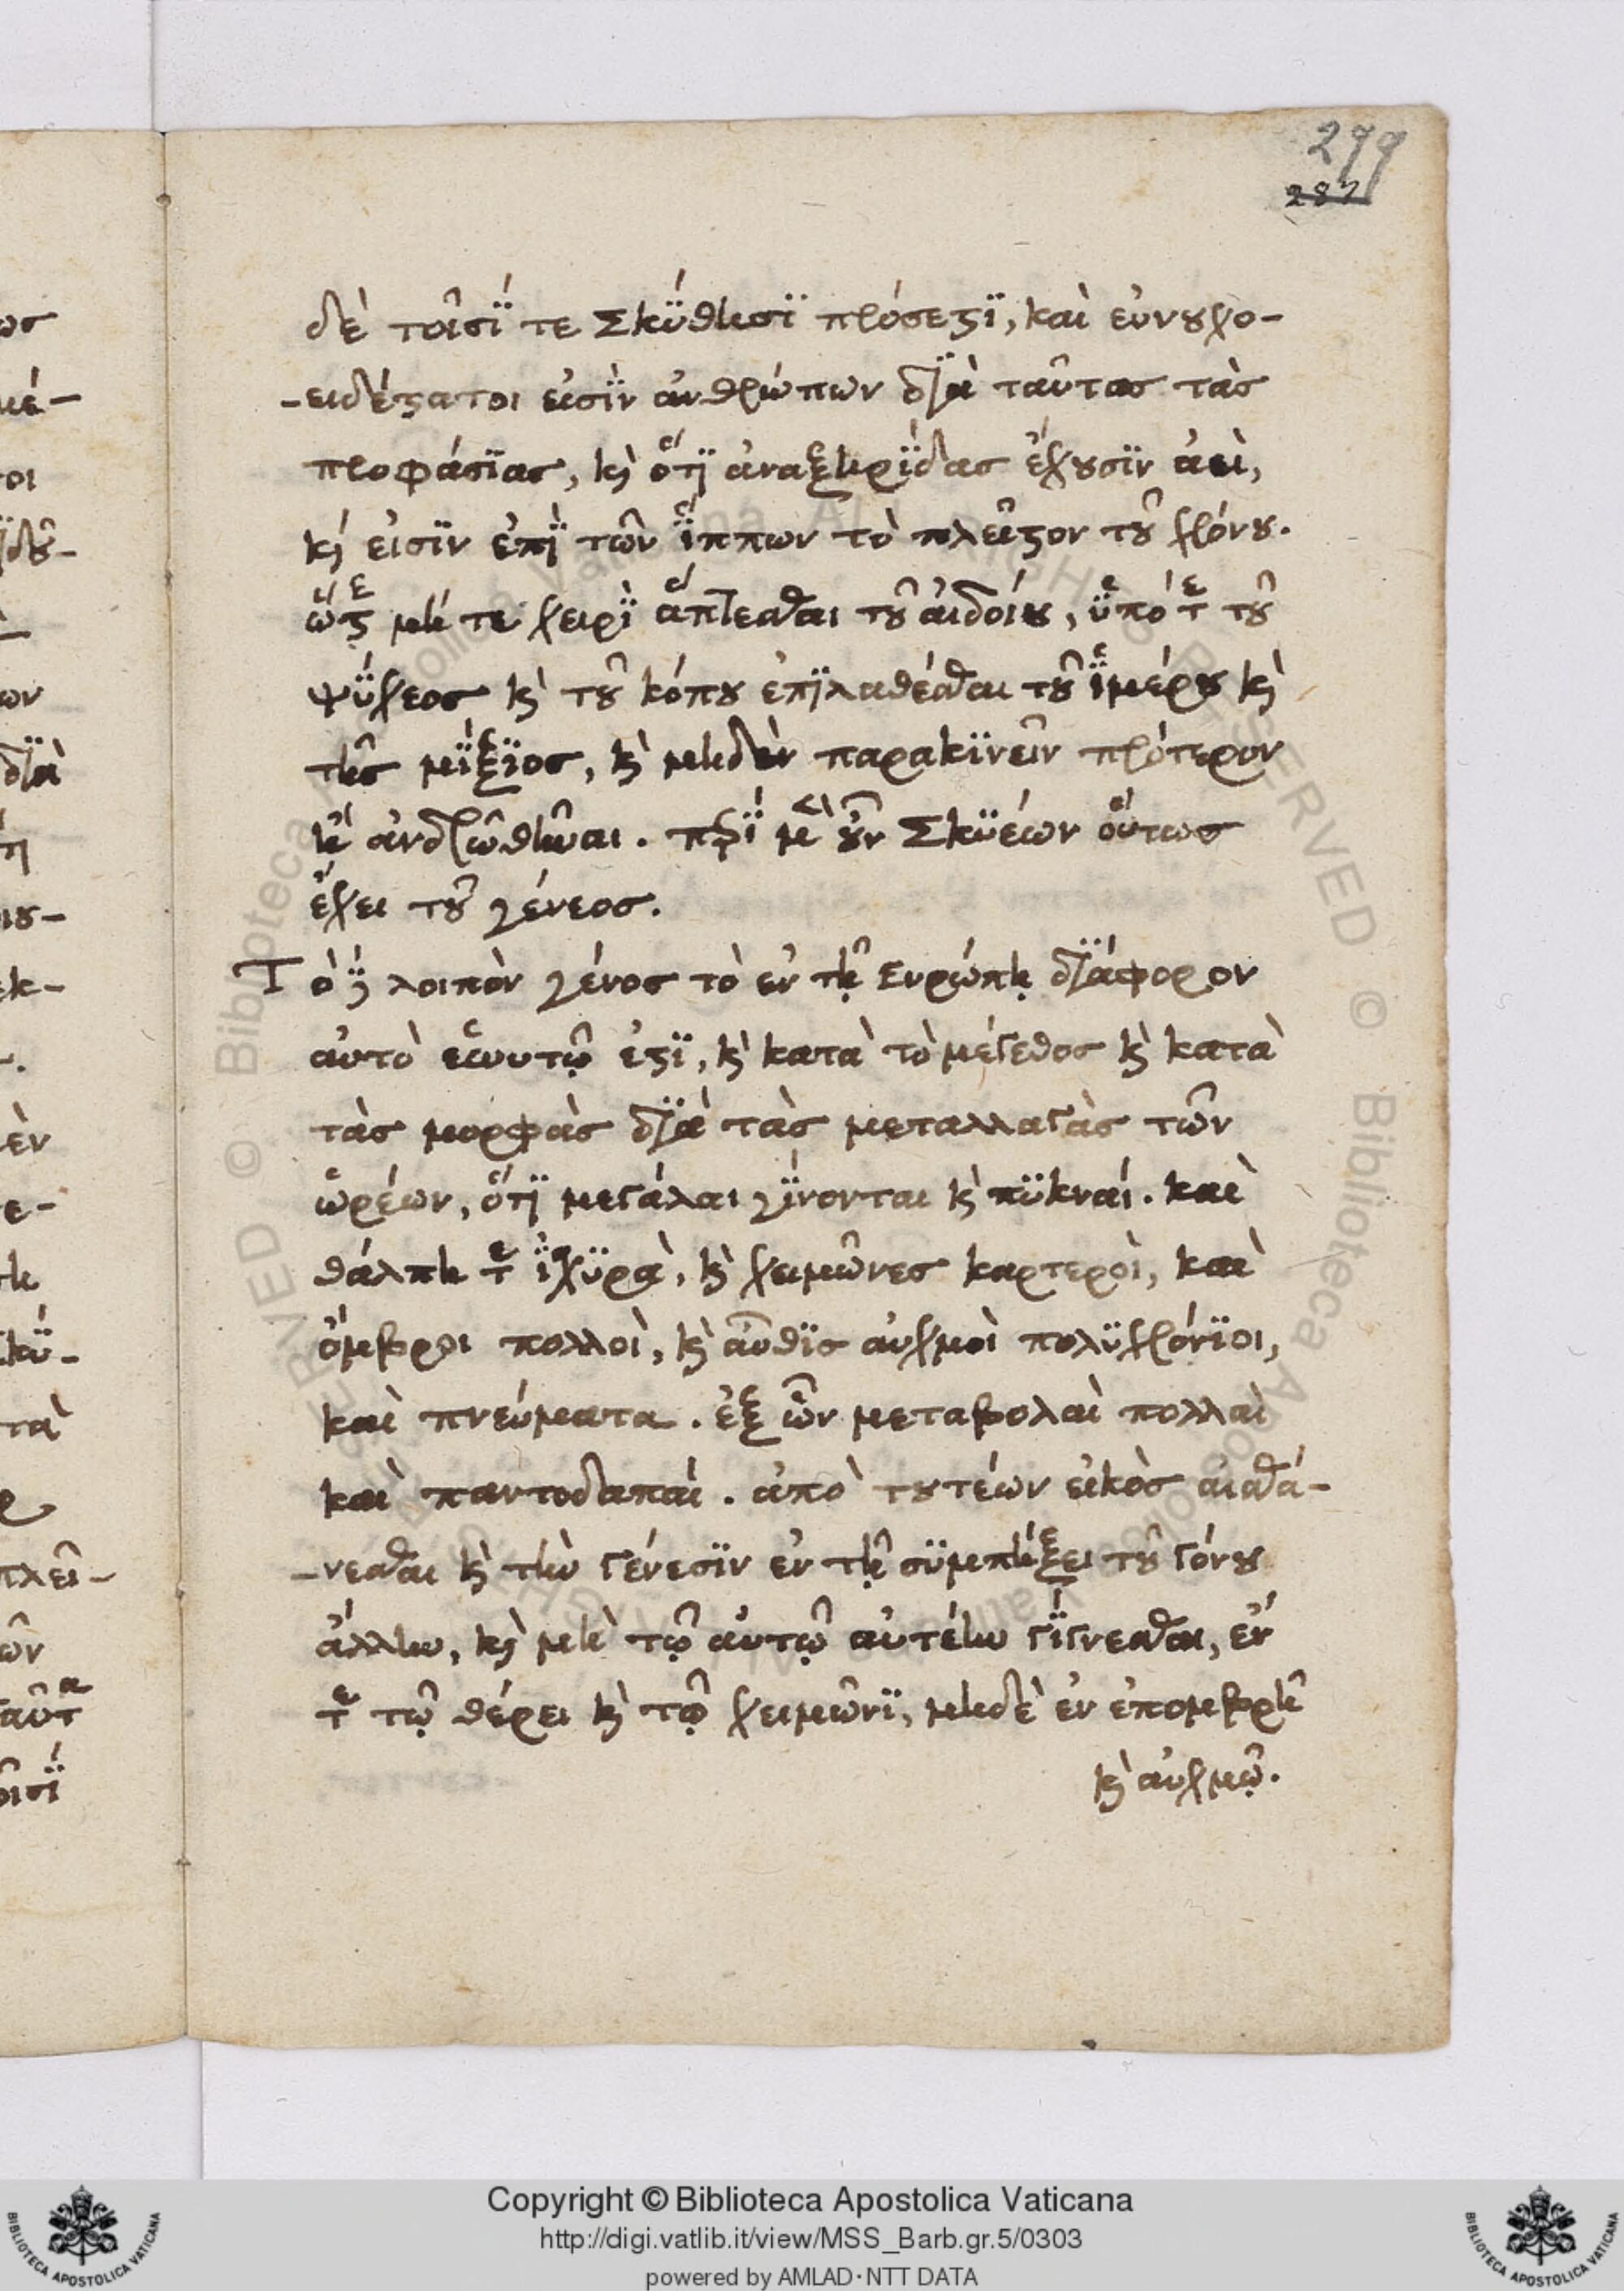 299
287
δὲ τοῖσΐ τε Σκΰθησϊ πρόσεστϊ, καὶ εὐνουχο-
-ειδέστατοι εἰσῒν ἀνθρώπων δϊὰ ταῦτας τὰς
προφάσϊας, κ̀ ὅτϊ ἀναξηρΐδας ἔχουσϊν ἀεὶ,
κ́ εἰσϊν ἐπῒ τῶν ἵππων τὸ πλεῖστον τοῦ χρόνου.
ὥστε μή τε χειρῒ ἅπτεσθαι τοῦ αἰδοίου, ὑπό τε τοῦ
ψΰχεος κ̀ τοῦ κόπου ἐπϊλαθέσθαι τοῦ ἱμέρου κ̀
τῆς μείξϊος, κ̀ μηδὲν παρακϊνεῖν πρότερον
ἢ ἀνδρωθῆναι. περϊ μὲν οὖν Σκϋέων οὕτως
ἔχει τοῦ γένεος.
Τὸ δὲ λοιπὸν γένος τὸ ἐν τῇ Ευρώπῃ δϊάφορον
αὐτὸ ἑωυτῷ ἐστϊ, κ̀ κατὰ τὸ μέγεθος κ̀ κατὰ
τὰς μορφὰς δϊὰ τὰς μεταλλαγὰς τῶν
ὡρέων, ὅτϊ μεγάλαι γΐνονται κ̀ πϋκναί. καὶ
θάλπη τε ἰσχϋρὰ, κ̀ χειμῶνες καρτεροὶ, καὶ
ὄμβροι πολλοὶ, κ̀ αὖθϊς αὐχμοὶ πολϋχρόνϊοι,
καὶ πνεύματα. ἐξ ὧν μεταβολαὶ πολλαὶ
καὶ παντοδαπαί. ἀπὸ τουτέων εἰκὸς αἰσθά-
-νεσθαι κ̀ τὴν γένεσϊν ἐν τῇ σϋμπήξει τοῦ γόνου
ἄλλην, κ̀ μὴ τῷ αὐτῷ αὐτέην γΐγνεσθαι, ἐν
τε τῷ θέρει κ̀ τῷ χειμῶνϊ, μηδὲ ἐν ἐπομβρῇ
κ̀ αὐχμῷ.
Copyright © Biblioteca Apostolica Vaticana
http://digi.vatlib.it/view/MSS_Barb.gr.5/0303
powered by AMLAD·NTT DATA